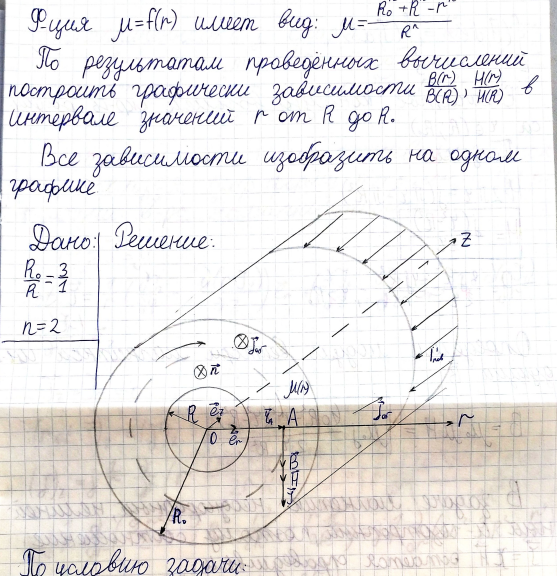 Фция μ=f(r) имеет вид: μ= R₀ⁿ+Rⁿ-rⁿ / Rⁿ
По результатам проведённых вычислений
построить графически зависимости B(r)/B(R), H(r)/H(R) в
интервале значений r от R до R₀.
Все зависимости изобразить на одном
графике
Дано: Решение:
R₀/R = 3/1
n=2
z
j об
n
μ(r)
R
A
r
0
e r
B
H
J
R₀
По условию задачи: